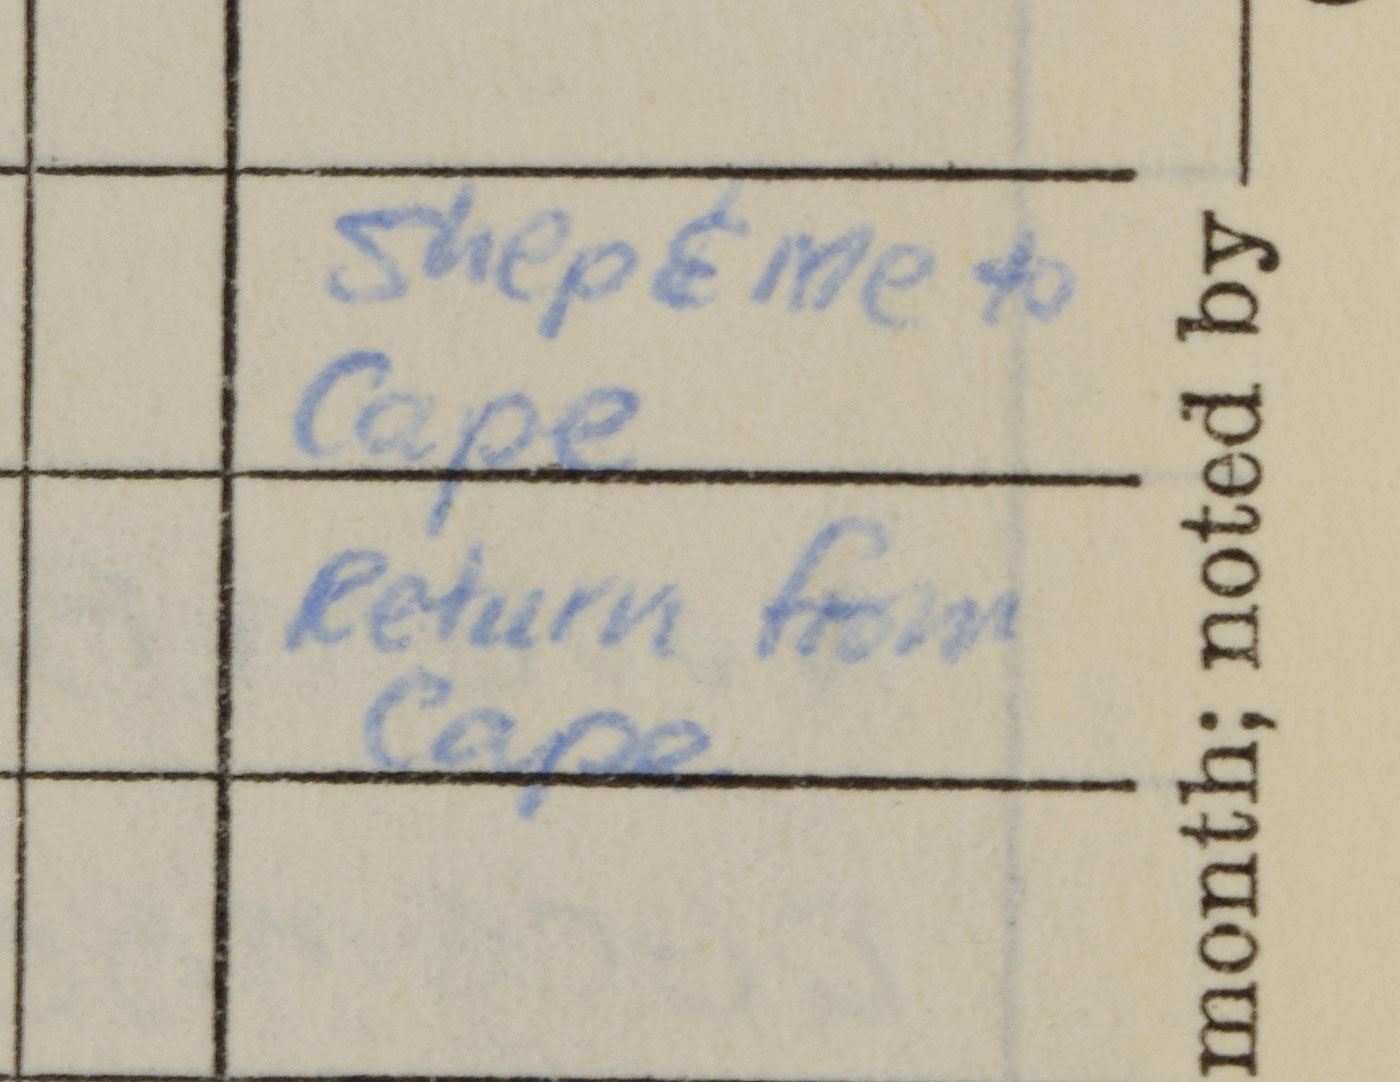 Shep & Me to
Cape
Return from
Cape.
month; noted by